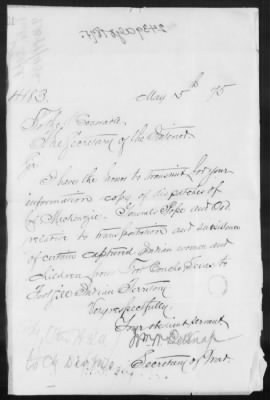 2439 AGO 1875
May 5th 75
4183.
To the Honorable
The Secretary of the Interior
Sir
I have the honor to transmit for your
information copy of dispatches of
of McKenzie. Generals Pope and Ord
relative to transportation and subsistence
of certain captured Indian women and
children from Fort Concho Texas to
Fort Sill Indian Territory
Very respectfully
Your obedient servant
Wm W Belknap
Secretary of War